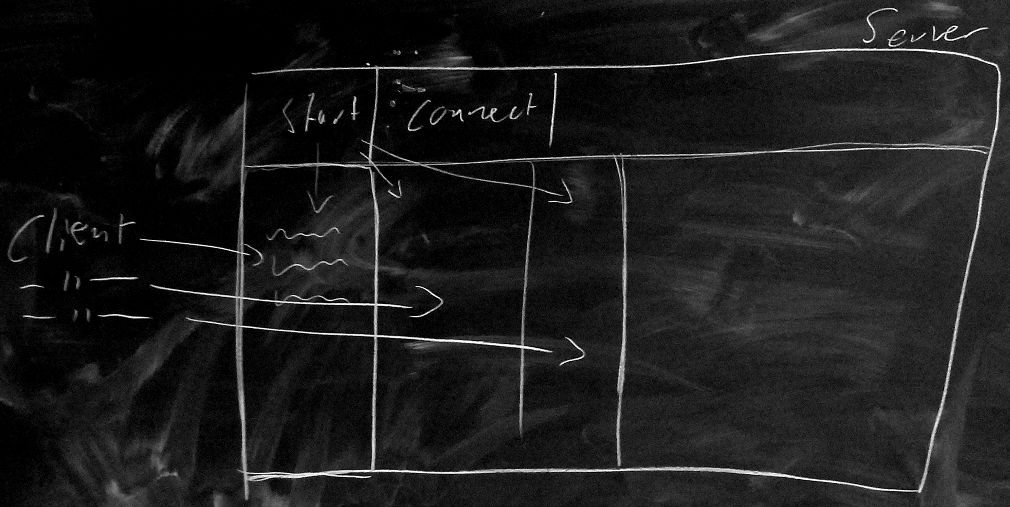 Server
Start Connect
Client
— " —
— " —